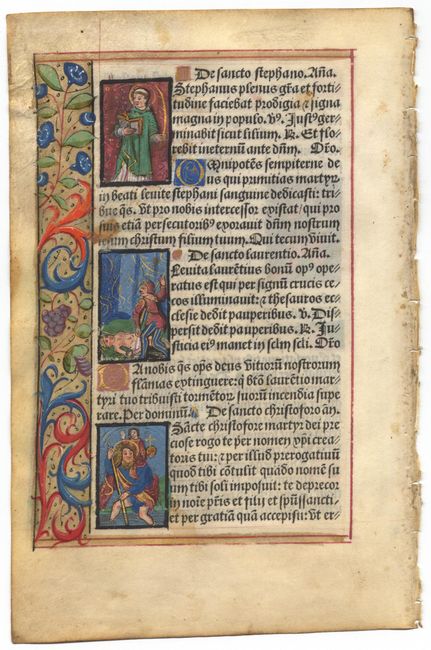 De sancto stephano. Aña.
Stephanus plenus gr̃a et forti⸗
tudine faciebat prodigia ⁊ signa
magna in populo. v᷒. Just᷒ ger⸗
minabit sicut lilium. R. Et flo⸗
rebit ineternũ ante dñm. Or̃o.
Omnipotẽs sempiterne de
us qui primitias martyr
in beati leuite stephani sanguine dedicasti: tri⸗
bue q̃s. vt pro nobis intercessor existat / qui pro
suis etiã persecutorib᷒ exorauit dñm nostrum
iesum christum filium tuum. Qui tecum viuit.
De sancto laurentio. Aña.
Leuita laurẽtius bonũ op᷒ ope⸗
ratus est qui per signũ crucis ce
cos illuminauit: ⁊ thesauros ec⸗
clesie dedit pauperibus. v. Dis⸗
persit dedit pauperibus. R. Ju⸗
sticia ei᷒ manet in sclm scli. Or̃o
Da nobis q̃s op̃s deus vitiorũ nostrorum
flãmas extinguere: q̃ btõ laurẽtio mar⸗
tyri tuo tribuisti tormẽtor suorũ incendia supe
rare. Per dominũ. De sancto christoforo añ.
Sancte christofore martyr dei pre
ciose rogo te per nomen xp̃i crea
toris tui: ⁊ per illud prerogatiuũ
quod tibi cõtulit quãdo nomẽ su
um tibi soli imposuit: te deprecor
in noĩe pr̃is et filii et sp̃ussancti:
et per gratiã quã accepisti: vt er⸗